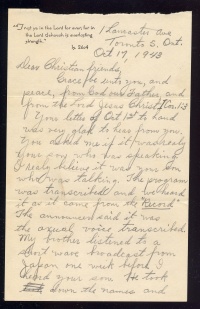 "Trust ye in the Lord for ever: for in
the Lord Jehovah is everlasting
strength."
Is. 26:4
1 Lancaster Ave
Toronto 5, Ont.
Oct 17, 1943
Dear Christian friends,
Grace be unto you, and
peace, from God our Father, and
from the Lord Jesus Christ.
Your letter of Oct 13 to hand
was very glad to hear from you.
You asked me if it was really
your boy who was speaking.
I really believe it was your son
who was talking. The program
was transcribed and we heard
it as it came from the "Record"
The announcer said it was
the actual voice transcribed.
My brother listened to a
short wave broadcast from
Japan one week before I
heard your son. He took
down the names and